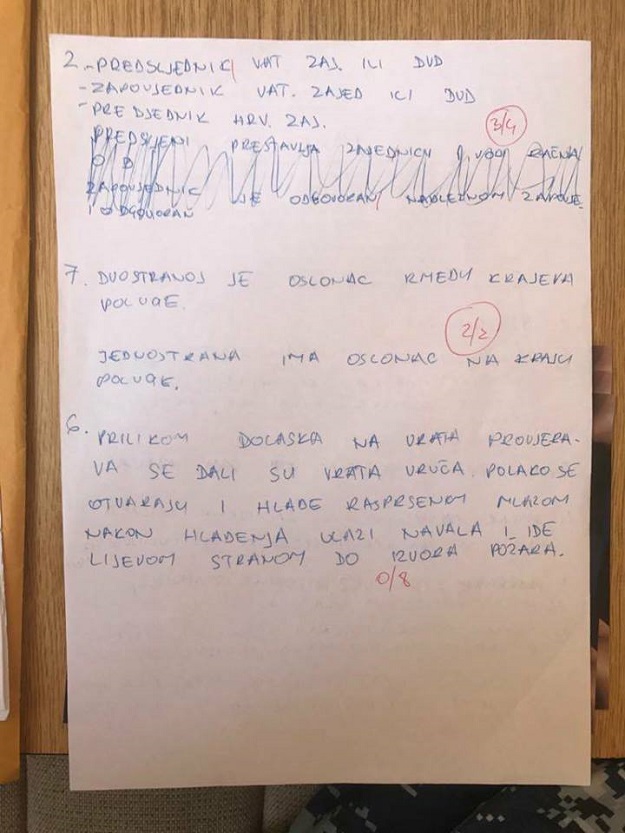 2. -PREDSJEDNIK VAT ZAJ. ILI DVD
-ZAPOVJEDNIK VAT. ZAJED ILI DVD
-PREDJEDNIK HRV. ZAJ.
3/4
PRESTAVLJA ZAJEDNICU
ZAPOVJEDNIK JE ODGOVORAN NADLEŽNOM
I ODGOVORAN
7. DVOSTRANOJ JE OSLONAC IZMEĐU KRAJEVA
POLUGE.
2/2
JEDNOSTRANA IMA OSLONAC NA KRAJU
POLUGE.
6. PRILIKOM DOLASKA NA VRATA PROVJERA-
VA SE DALI SU VRATA VRUĆA. POLAKO SE
OTVARAJU I HLADE RASPRŠENOM MLAZOM
NAKON HLAĐENJA ULAZI NAVALA I IDE
LIJEVOM STRANOM DO IZVORA POŽARA.
0/8